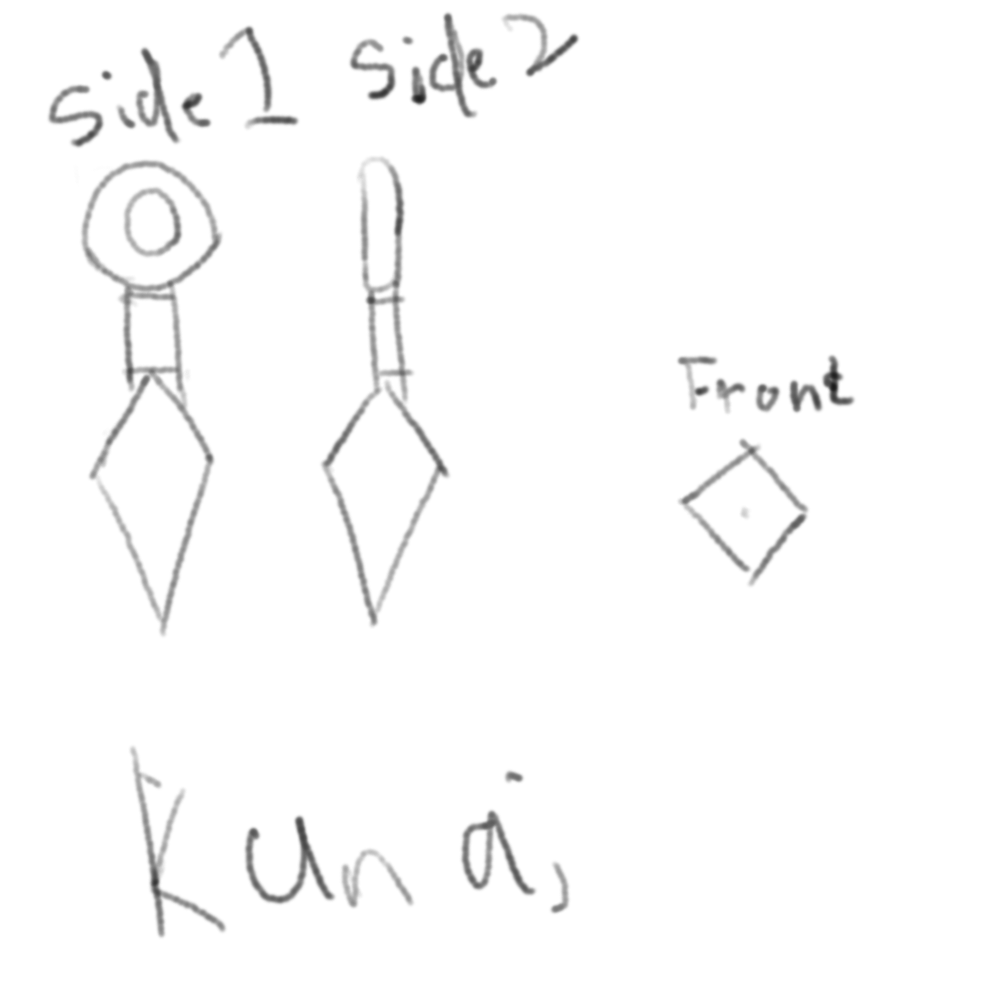 Side 1
Side 2
Front
Kunai